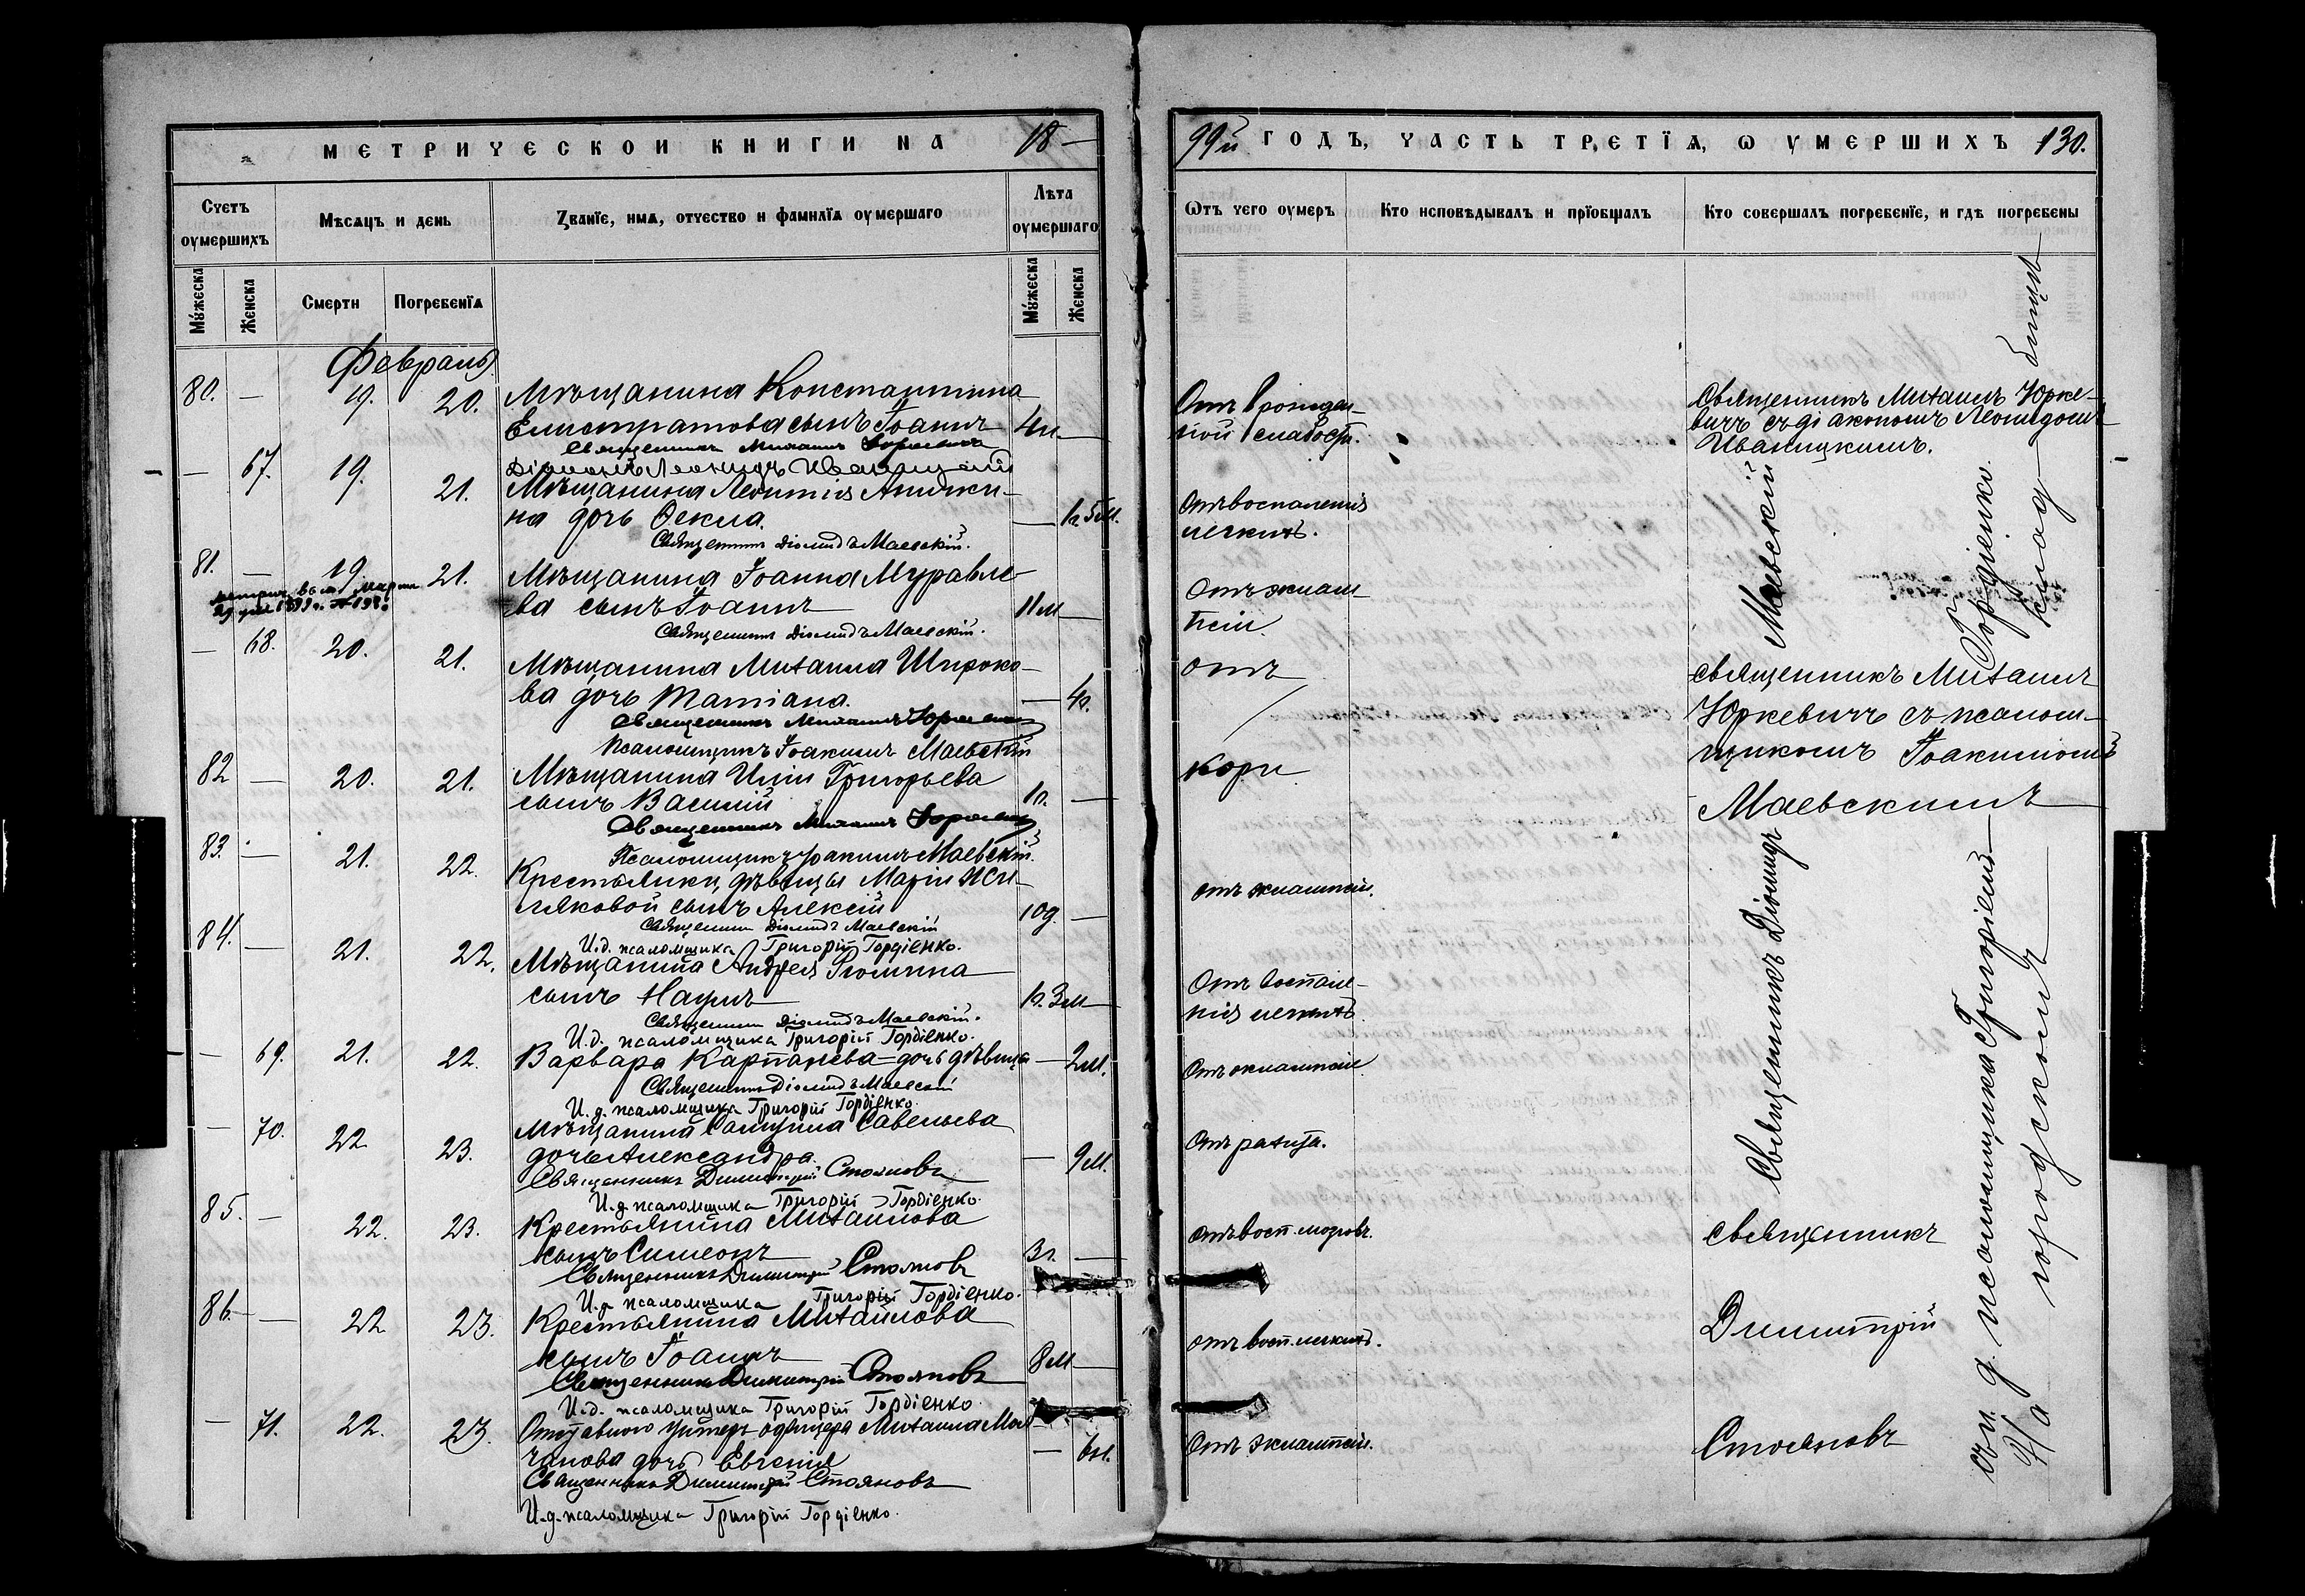 МЕТРИЧЕСКОЙ КНИГИ НА 18—
Счетъ оумершихъ
Мѣсяцъ и день
Званїе, имя, отчество и фамилїя оумершаго
Лѣта оумершаго
Мужеска
Женска
Смерти
Погребенїя
Мужеска
Женска
Февраль
80. — 19. 20. Мѣщанина Константина
Елистратова сынъ Іоаннъ 4м —
Священникъ Михаилъ Юркевичъ
Діаконъ Леонидъ Иваницкій
— 67. 19. 21. Мѣщанина Леонтія
на дочь Ѳекла. — 1г. 5м.
Священникъ Діомидъ Маевскій.
81. — 19 21. Мѣщанина Іоанна Муравле-
ва сынъ Іоаннъ 11м —
Священникъ Діомидъ Маевскій.
— 68. 20. 21. Мѣщанина Михаила Широко-
ва дочь Татіана. — 4г.
Священникъ Михаилъ Юркевичъ
Псаломщикъ Іоакимъ Маевскій
82 — 20. 21. Мѣщанина Иліи Григорьева
сынъ Василій 1г. —
Священникъ Михаилъ Юркевичъ
Псаломщикъ Іоакимъ Маевскій.
83. — 21. 22. Крестьянки, дѣвицы Маріи
сынъ Алексій —
Священникъ Діомидъ Маевскій
И.д. псаломщика Григорій Гордіенко.
84. — 21. 22. Мѣщанина Андрея
сынъ Наумъ 1г. 3м —
Священникъ Діомидъ Маевскій.
И.д. псаломщика Григорій Гордіенко.
— 69. 21. 22. Варвара дочь дѣвицы — 2м.
Священникъ Діомидъ Маевскій
И.д. псаломщика Григорій Гордіенко.
— 70. 22 23. Мѣщанина Самуила Савельева
дочь Александра. — 9м.
Священникъ Димитрій Стояновъ
И.д. псаломщика Григорій Гордіенко.
85. — 22. 23. Крестьянина Михайлова
сынъ Симеонъ 3г. —
Священникъ Димитрій Стояновъ
И.д. псаломщика Григорій Гордіенко.
86. — 22 23. Крестьянина Михайлова
сынъ Іоаннъ 8м —
Священникъ Димитрій Стояновъ
И.д. псаломщика Григорій Гордіенко
— 71. 22. 23. Отставного унтеръ-офицера Михаила Мол-
чанова дочь Евгенія — 6м.
Священникъ Димитрій Стояновъ
И.д. псаломщика Григорій Гордіенко.
99й ГОДЪ, ЧАСТЬ ТРЕТЇЯ, Ѡ УМЕРШИХЪ 130.
Ѿтъ чего оумеръ
Кто исповѣдывалъ и прїобщалъ
Кто совершалъ погребенїе, и гдѣ погребены
Отъ врожден-
ной слабости.
Отъ воспаленія
легкихъ.
Отъ эклам-
псіи.
Отъ
кори
отъ эклампсіи.
Отъ воспале-
нія легкихъ.
Отъ экламpсіи.
Отъ рахита.
отъ восп. мозговъ.
отъ восп. легкихъ.
Отъ эклампсіи.
Священникъ Михаилъ Юрке-
вичъ съ діакономъ Леонидомъ
Иваницкимъ.
Священникъ Діомидъ Маевскій
Священникъ Михаилъ
Юркевичъ съ псалом-
щикомъ Іоакимомъ
Маевскимъ
Священникъ
Димитрій
Стояновъ
съ и. д. псаломщика Григоріемъ Гордіенко.
На городскомъ кладбищѣ